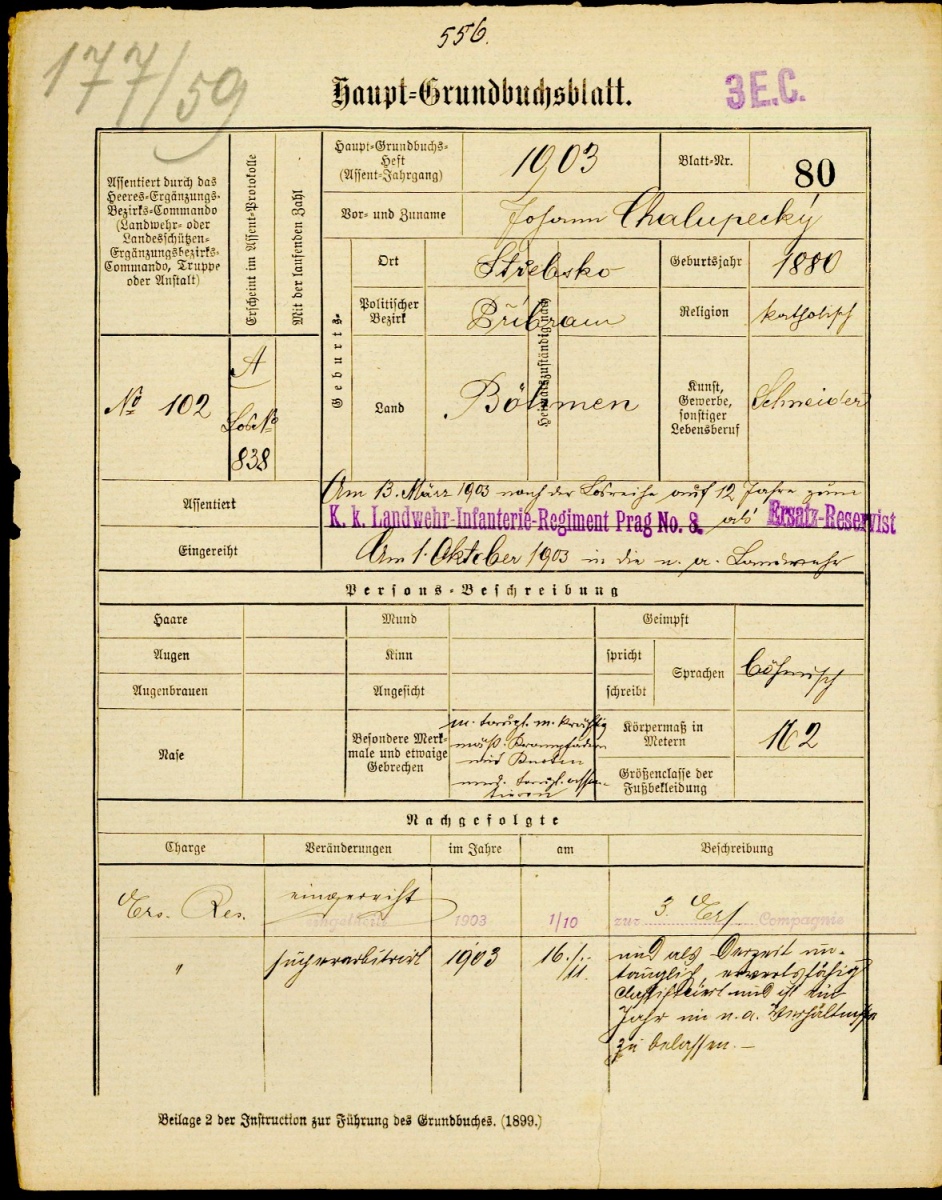 556.
177/59
Haupt-Grundbuchsblatt.
3 E.C.
Assentiert durch das
Heeres-Ergänzungs-
Bezirks-Commando
(Landwehr- oder
Landesschützen-
Ergänzungsbezirks-
Commando, Truppe
oder Anstalt)
Erscheint im Assent-Protokolle
Mit der laufenden Zahl
Haupt-Grundbuchs-
Heft
(Assent-Jahrgang)
1903
Blatt-Nr.
80
Vor- und Zuname
Johann Chalupecký
Geburts-
Ort
Střebsko
Geburtsjahr
1880
Politischer
Bezirk
Příbram
Heimatszuständig nach
Religion
katholisch
Land
Böhmen
Kunst,
Gewerbe,
sonstiger
Lebensberuf
Schneider
No 102
A
Los No
838
Assentiert
Am 13. März 1903 nach der Losreihe auf 12 Jahre zum
K. k. Landwehr-Infanterie-Regiment Prag No. 8. als Ersatz-Reservist
Eingereiht
Am 1. Oktober 1903 in die n. a. Landwehr
Persons-Beschreibung
Haare
Mund
Geimpft
Augen
Kinn
spricht
schreibt
Sprachen
böhmisch
Augenbrauen
Angesicht
Nase
Besondere Merk-
male und etwaige
Gebrechen
m. taugl. m. kräftig
mäß. Krampfadern
mit Knoten
taugl.
Körpermaß in
Metern
162
Größenclasse der
Fußbekleidung
Nachgefolgte
Charge
Veränderungen
im Jahre
am
Beschreibung
Ers. Res.
eingereiht
1903
1/10
zur 3. Ers Compagnie
"
superarbitriert
1903
16./11.
und als Derzeit un-
tauglich, erwerbsfähig
classificiert und ist ein
Jahr im n. a. Verhältnisse
zu belassen.—
Beilage 2 der Instruction zur Führung des Grundbuches. (1899.)